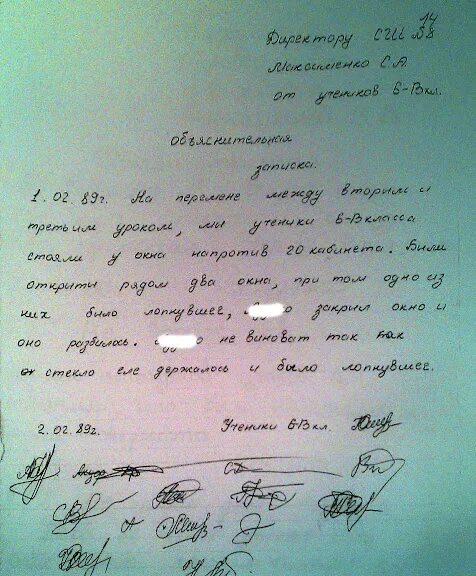 14
Директору СШ №8
Максименко С.А
от учеников 6-В кл.
объяснительная
записка.
1.02.89г. На перемене между вторым и
третьим уроком, ми ученики 6-В класса
стояли у окна напротив 20 кабинета. Били
открити рядом два окна, при том одно из
них било лопнувшее, о закрил окно и
оно разбилось. о не виноват так как
стекло еле держалось и било лопнувшее.
2.02.89г. Ученики 6-В кл.